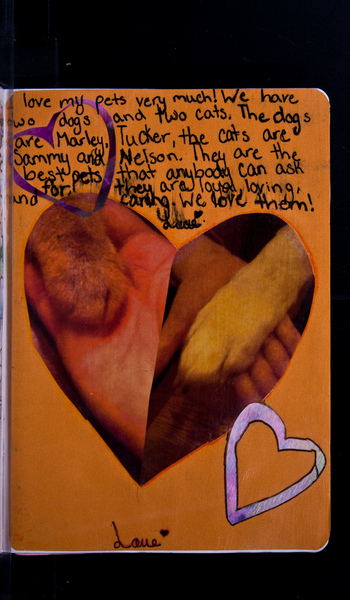 I love my pets very much! We have
two dogs and two cats. The dogs
are Marley, Tucker, the cats are
Sammy and Nelson. They are the
best pets that anybody can ask
for! they are loyal, loving,
and caring. We love them!
Love
Love